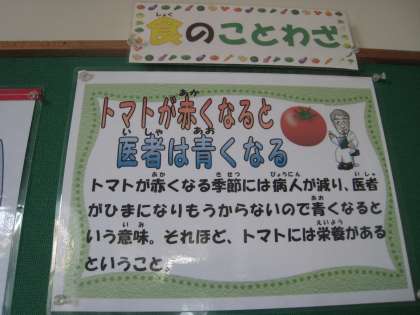 食のことわざ
トマトが赤くなると
医者は青くなる
トマトが赤くなる季節には病人が減り、医者
がひまになりもうからないので青くなると
いう意味。それほど、トマトには栄養がある
ということ。